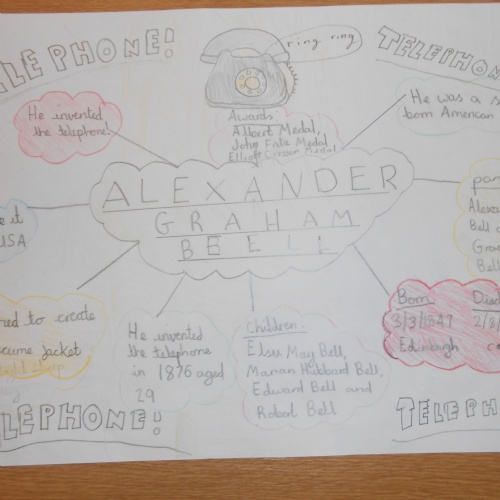 ELEPHONE!
ring ring
TELEPHON
He invented
the telephone!
Awards:
Albert Medal,
John Fritz Medal,
Elliott Cresson Medal
He was a s
born American
ALEXANDER
GRAHAM
BEELL
par
Alexa
Bell
Gra
Bell
e it
USA
red to create
jacket
He invented
the telephone
in 1876 aged
29
Children:
Elsie May Bell,
Marian Hubbard Bell,
Edward Bell and
Robert Bell
Born
3/3/1847
Edinburgh
Died
2/8/
ca
LEPHONE!!
TELEPH